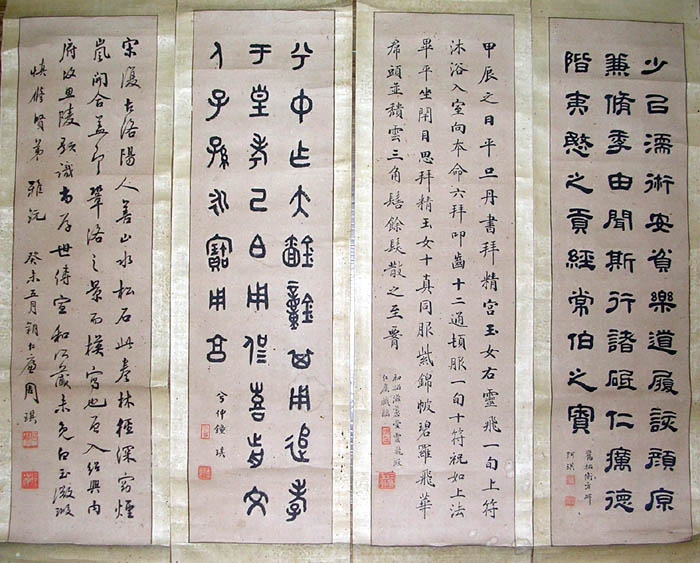 少㠯濡術安貧樂道履該顏原
兼脩季由聞斯行諸砥仁癘德
階夷愍之貢經常伯之寮
舊拓衡方碑
琪
甲辰之日平旦丹書拜精宮玉女右靈飛一旬上符
沐浴入室向本命六拜叩齒十二通頓服一旬十符祝如上法
畢平坐閉目思拜精玉女十真同服紫錦帔碧羅飛華
帬頭並穨雲三角髻餘髮散之至腰
初拓滋蕙堂靈飛經
兮中乍大鐘其用追孝
于皇考己白用侃喜歬文
人子孫永寶用亯
兮仲鐘 琪
宋復古洛陽人善山水松石此卷林極深窈煙
嵐開合蓋乃鞏洛之景而模寫也后入紹興內
府以思陵題識世傳宣和所藏未免白玉微瑕
慎修賢弟 雅玩 癸未五月朔仁周琪